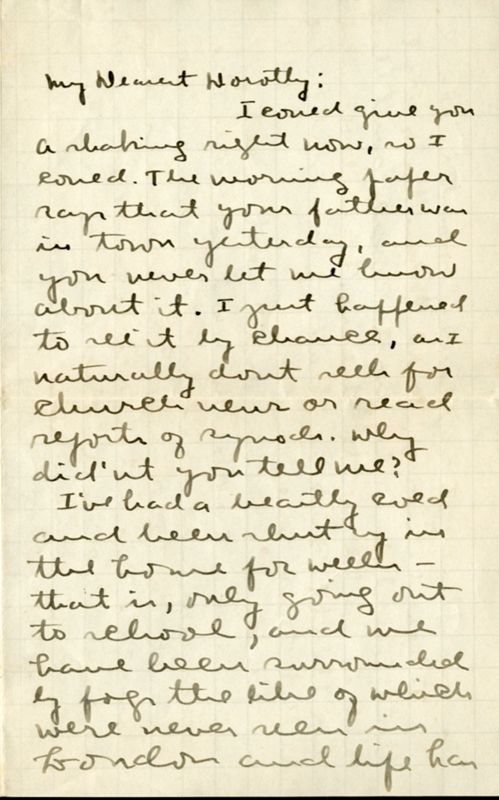 My Dearest Dorothy:
I could give you
a shaking right now, so I
could. The morning paper
says that your father was
in town yesterday, and
you never let me know
about it. I just happened
to see it by chance, as I
naturally dont seek for
church news or read
reports of synods. Why
did'nt you tell me?
I've had a beastly cold
and been shut up in
the house for weeks –
that is, only going out
to school, and we
have been surrounded
by fogs the like of which
were never seen in
London and life has